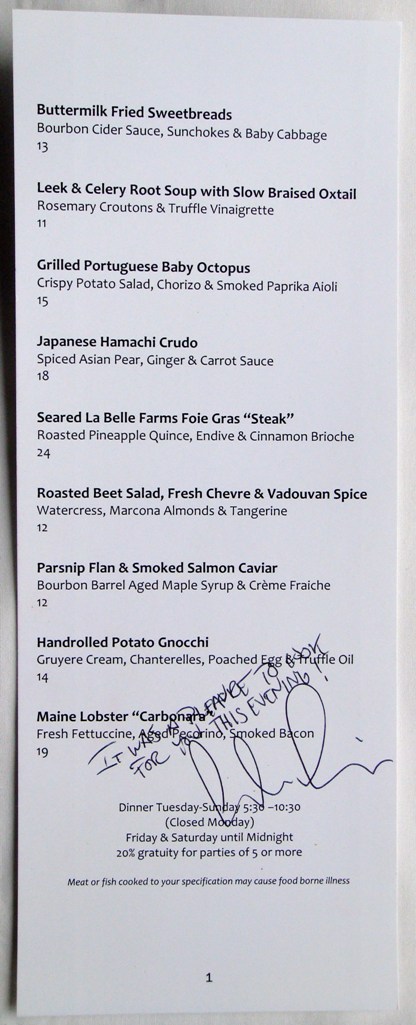 Buttermilk Fried Sweetbreads
Bourbon Cider Sauce, Sunchokes & Baby Cabbage
13
Leek & Celery Root Soup with Slow Braised Oxtail
Rosemary Croutons & Truffle Vinaigrette
11
Grilled Portuguese Baby Octopus
Crispy Potato Salad, Chorizo & Smoked Paprika Aioli
15
Japanese Hamachi Crudo
Spiced Asian Pear, Ginger & Carrot Sauce
18
Seared La Belle Farms Foie Gras “Steak”
Roasted Pineapple Quince, Endive & Cinnamon Brioche
24
Roasted Beet Salad, Fresh Chevre & Vadouvan Spice
Watercress, Marcona Almonds & Tangerine
12
Parsnip Flan & Smoked Salmon Caviar
Bourbon Barrel Aged Maple Syrup & Crème Fraiche
12
Handrolled Potato Gnocchi
Gruyere Cream, Chanterelles, Poached Egg & Truffle Oil
14
Maine Lobster “Carbonara”
Fresh Fettuccine, Aged Pecorino, Smoked Bacon
19
IT WAS A PLEASURE TO COOK
FOR YOU THIS EVENING!
Dinner Tuesday-Sunday 5:30 –10:30
(Closed Monday)
Friday & Saturday until Midnight
20% gratuity for parties of 5 or more
Meat or fish cooked to your specification may cause food borne illness
1